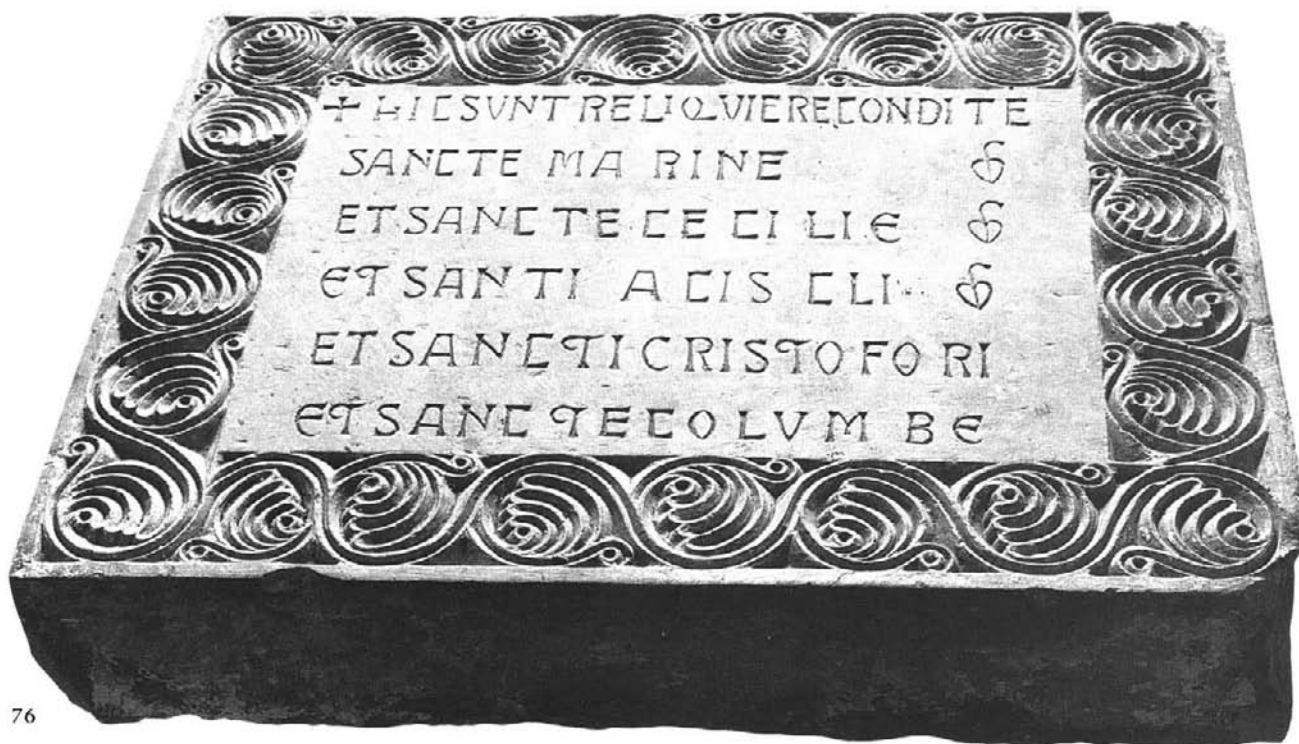 + HIC SVNT RELIQVIE RECONDITE
SANCTE MARINE
ET SANCTE CECILIE
ET SANTI ACISCLI
ET SANCTI CRISTOFORI
ET SANCTE COLVMBE
76